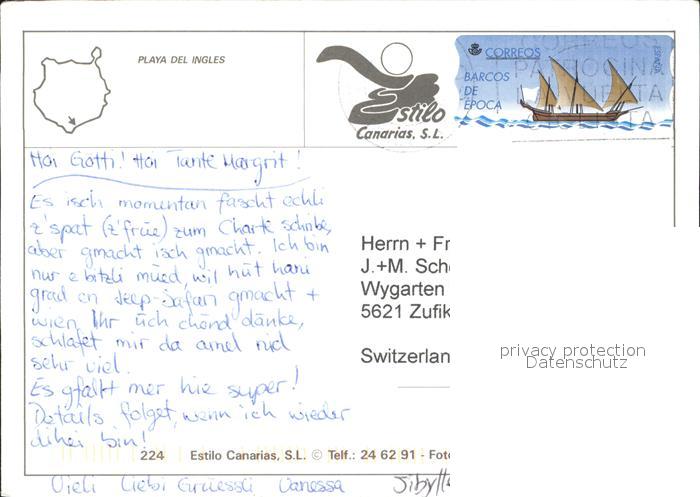 PLAYA DEL INGLES
Estilo
Canarias, S.L.
CORREOS
ESPAÑA
BARCOS
DE
EPOCA
Hoi Gotti! Hoi Tante Margrit!
Es isch momentan fascht echli
z'spat (z'früe) zum Charte schribe,
aber gmacht isch gmacht. Ich bin
nur e bitzli müed, wil hüt hani
grad en Jeep-Safari gmacht +
wien Ihr üch chönd dänke,
schlafet mir da amel nid
sehr viel.
Es gfallt mer hie super!
Details folget, wenn ich wieder
dihei bin!
Vieli Liebi Grüessli Vanessa
Herrn + Fr
J.+M. Sch
Wygarten
5621 Zufik
Switzerlan
privacy protection
Datenschutz
224 Estilo Canarias, S.L. © Telf.: 24 62 91 - Foto